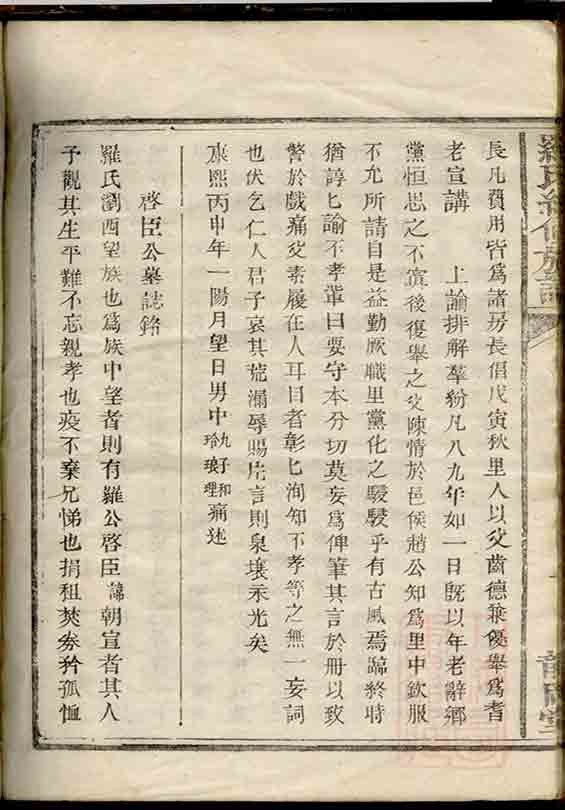 羅氏續修族譜
長凡費用皆爲諸房長倡戊寅秋里人以父齒德兼優舉爲耆
老宣講　上諭排解羣紛凡八九年如一日旣以年老辭鄉
黨恒思之不寘後復舉之父陳情於邑侯趙公知爲里中欽服
不允所請自是益勤厥職里黨化之駸駸乎有古風焉臨終時
猶諄匕諭不孝輩曰要守本分切莫妄爲俾筆其言於册以致
警於戲痛父素履在人耳目者彰匕洵知不孝等之無一妄詞
也伏乞仁人君子哀其荒漏辱賜片言則泉壤永光矣
康熙丙申年一陽月望日男中九玲琅子和理痛述
啓臣公墓誌銘
羅氏瀏西望族也爲族中望者則有羅公啓臣諱朝宣者其人
予觀其生平難不忘親孝也疫不棄兄悌也捐租焚劵矜孤恤